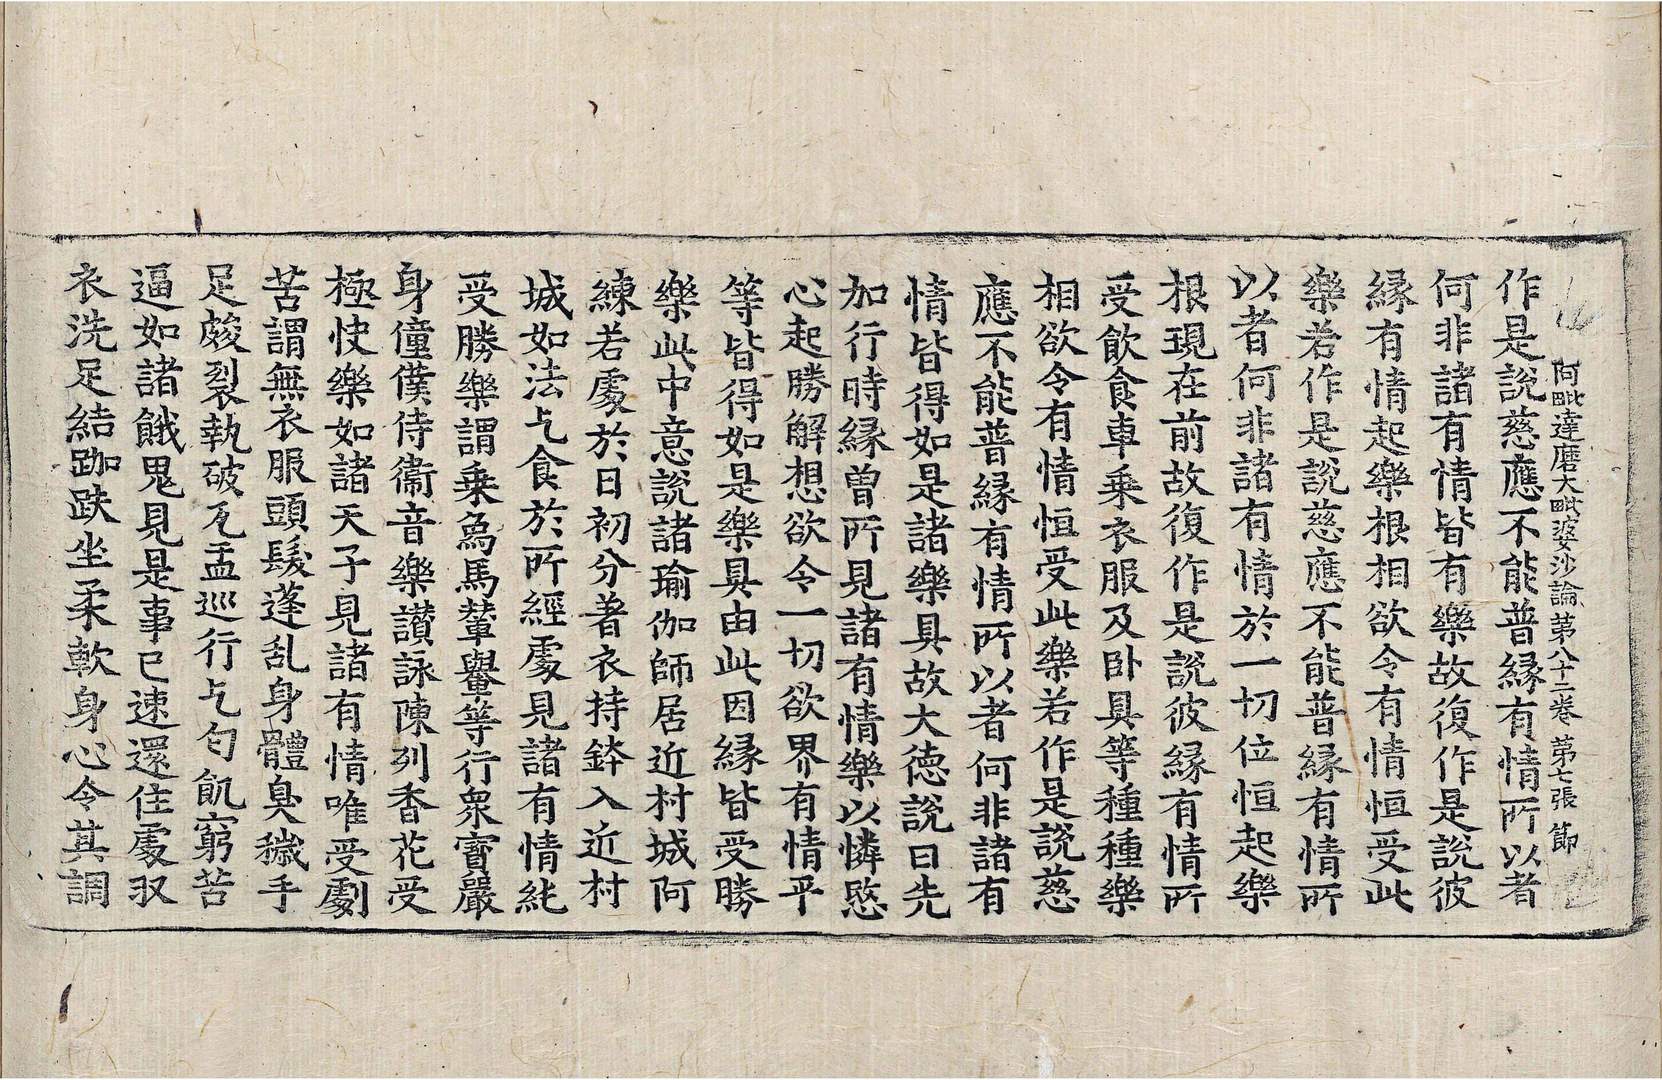 阿毗達磨大毗婆沙論第八十二卷 第七張 節
作是說慈應不能普緣有情所以者
何非諸有情皆有樂故復作是說彼
緣有情起樂根相欲令有情恒受此
樂若作是說慈應不能普緣有情所
以者何非諸有情於一切位恒起樂
根現在前故復作是說彼緣有情所
受飲食車乘衣服及卧具等種種樂
相欲令有情恒受此樂若作是說慈
應不能普緣有情所以者何非諸有
情皆得如是諸樂具故大德說曰先
加行時緣曾所見諸有情樂以憐愍
心起勝解想欲令一切欲界有情平
等皆得如是樂具由此因緣皆受勝
樂此中意說諸瑜伽師居近村城阿
練若處於日初分著衣持鉢入近村
城如法乞食於所經處見諸有情純
受勝樂謂乘象馬輦轝等行衆寶嚴
身僮僕侍衛音樂讚詠陳列香花受
極快樂如諸天子見諸有情唯受劇
苦謂無衣服頭髮蓬乱身體臭穢手
足皴裂執破瓦盂巡行乞匂飢窮苦
逼如諸餓鬼見是事已速還住處収
衣洗足結跏趺坐柔軟身心令其調